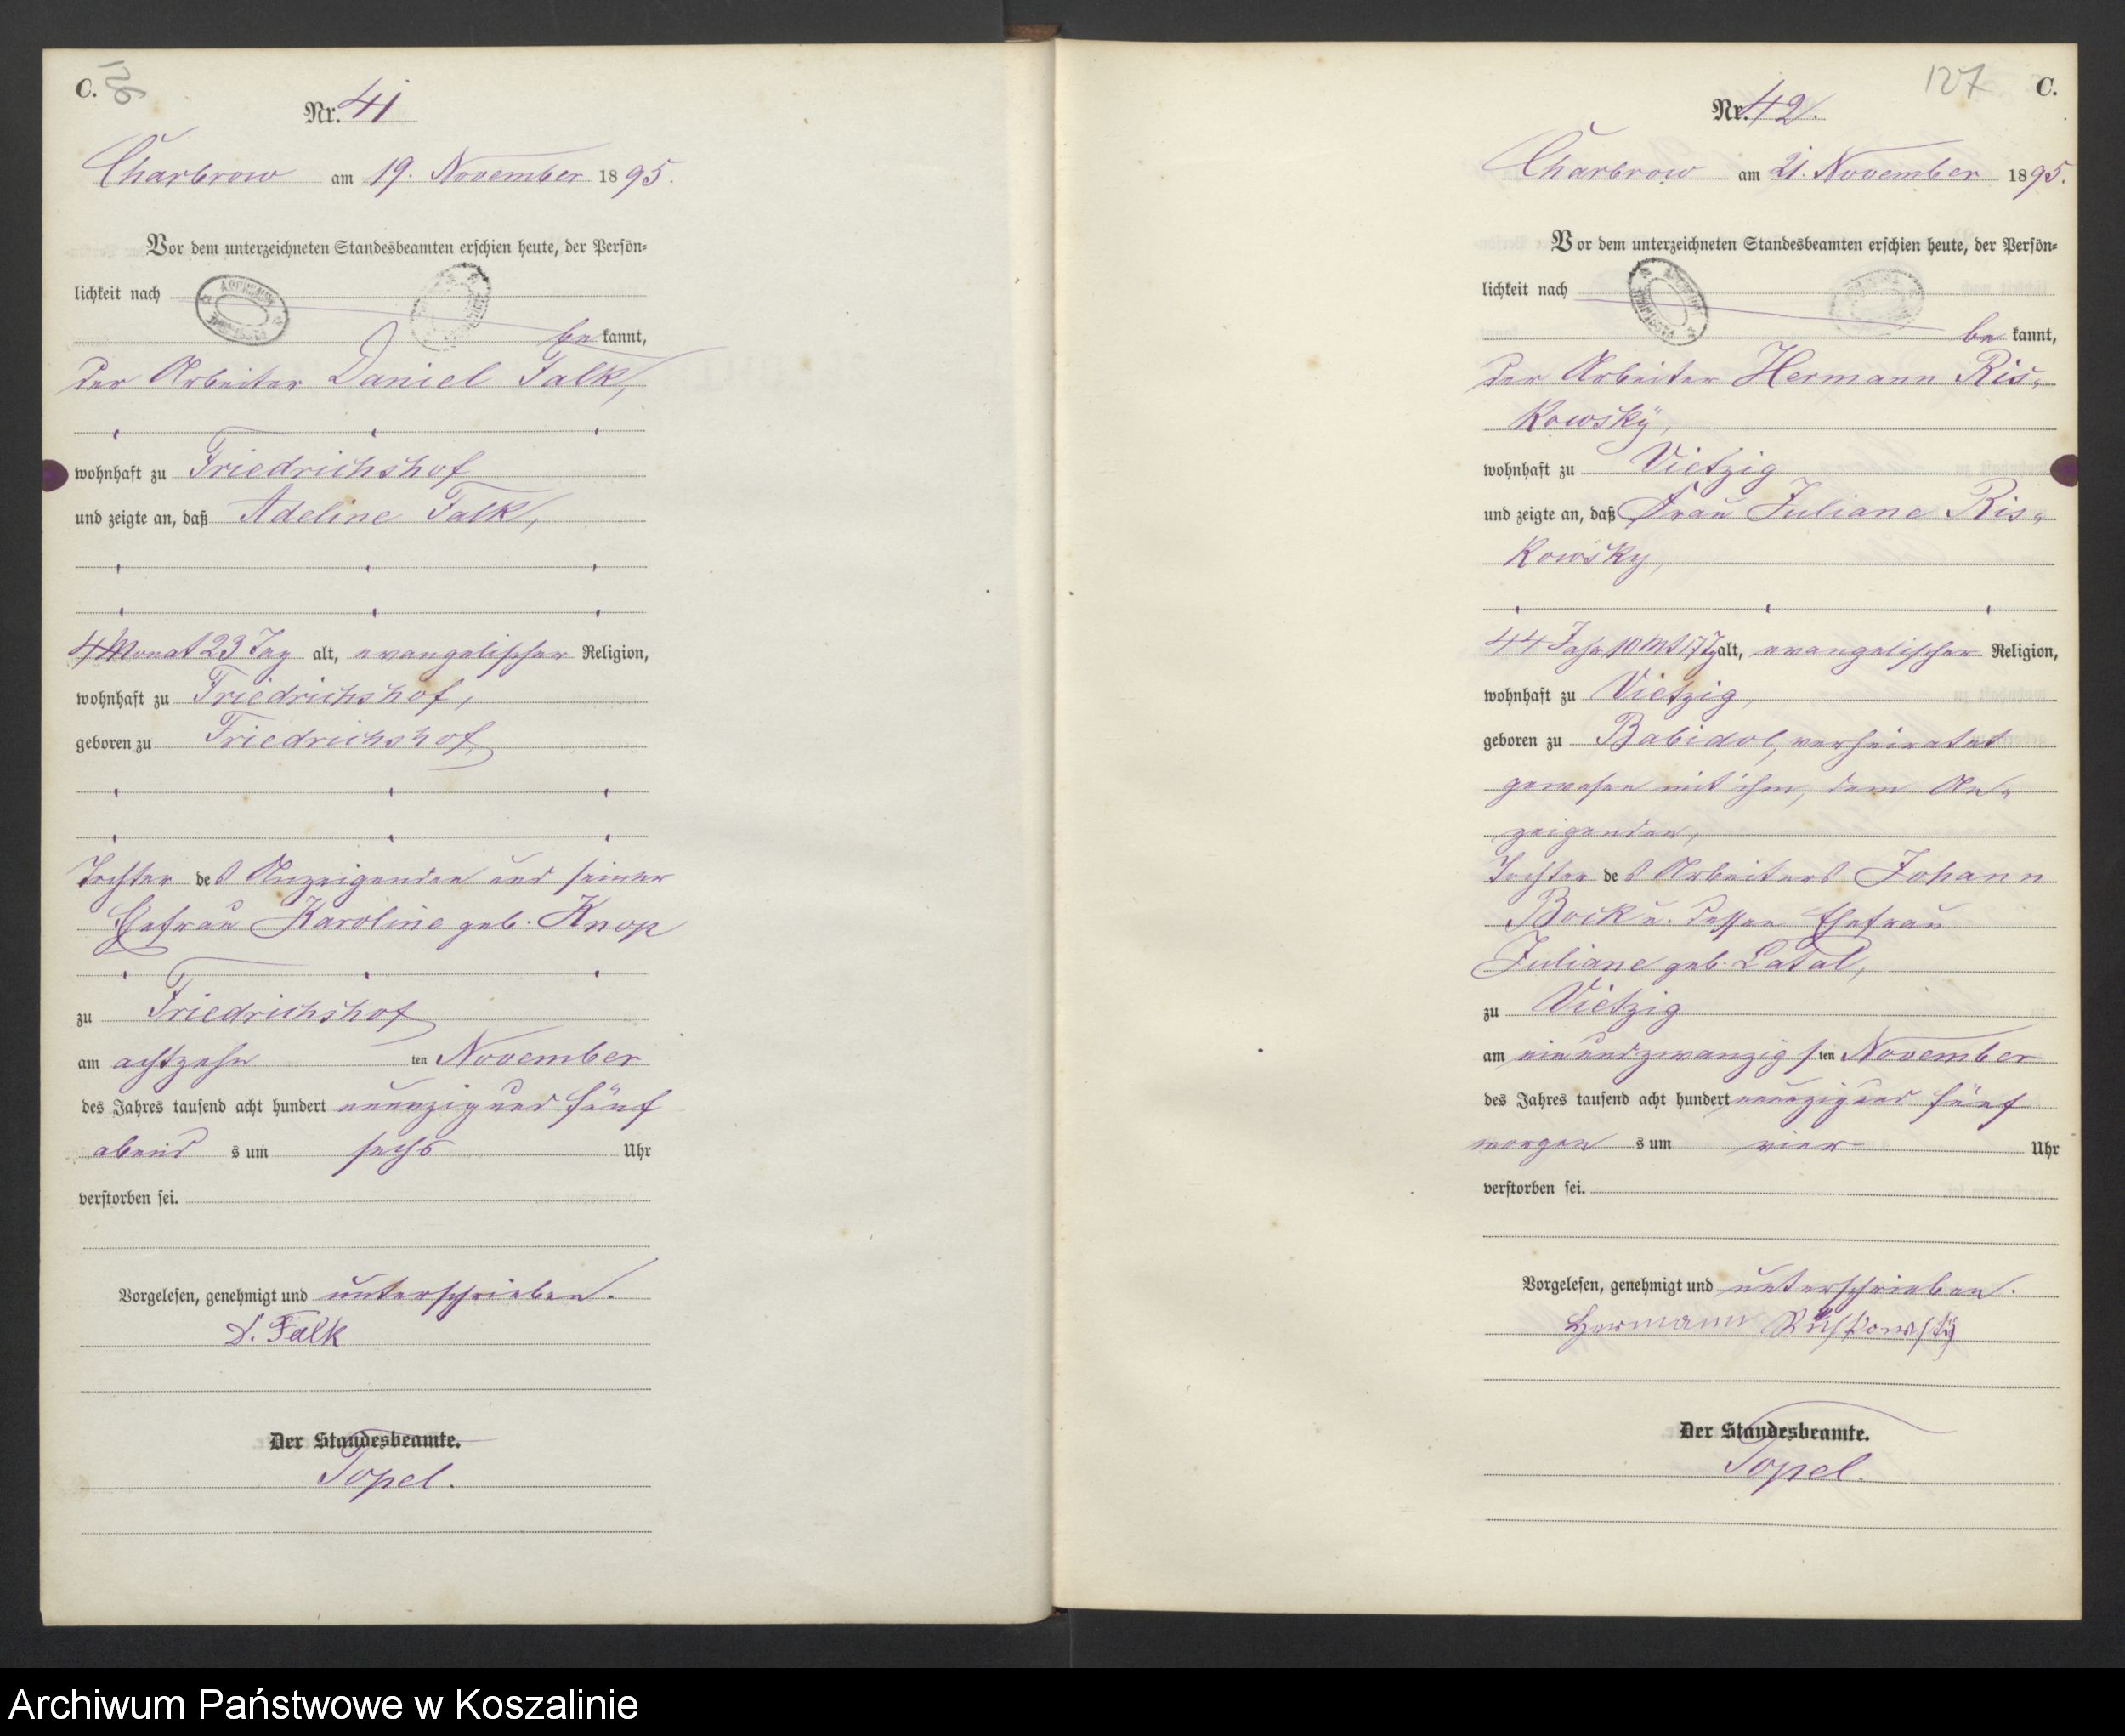 C.
126
Nr. 41
Charbrow am 19. November 1895.
Vor dem unterzeichneten Standesbeamten erschien heute, der Persön=
lichkeit nach
be kannt,
der Arbeiter Daniel Falk,
wohnhaft zu Friedrichshof
und zeigte an, daß Adeline Falk,
4 Monat 23 Tag alt, evangelischer Religion,
wohnhaft zu Friedrichshof,
geboren zu Friedrichshof
Tochter des Anzeigenden und seiner
Ehefrau Karoline geb. Knop
zu Friedrichshof
am achtzehn ten November
des Jahres tausend acht hundert neunzig und fünf
abend s um sechs Uhr
verstorben sei.
Vorgelesen, genehmigt und unterschrieben.
D. Falk
Der Standesbeamte.
Topel.
127
C.
Nr. 42.
Charbrow am 21. November 1895.
Vor dem unterzeichneten Standesbeamten erschien heute, der Persön=
lichkeit nach
be kannt,
der Arbeiter Hermann Ris=
kowsky,
wohnhaft zu Vietzig
und zeigte an, daß Frau Juliane Ris=
kowsky,
44 Jahr 10 Mt 17 Tg alt, evangelischer Religion,
wohnhaft zu Vietzig,
geboren zu Babidol, verheiratet
gewesen mit ihm, dem An=
zeigenden,
Tochter des Arbeiters Johann
Bock u. dessen Ehefrau
Juliane geb. Latal,
zu Vietzig
am einundzwanzigsten November
des Jahres tausend acht hundert neunzig und fünf
morgen s um vier Uhr
verstorben sei.
Vorgelesen, genehmigt und unterschrieben.
Hermann Rißkowsky
Der Standesbeamte.
Topel.
Archiwum Państwowe w Koszalinie